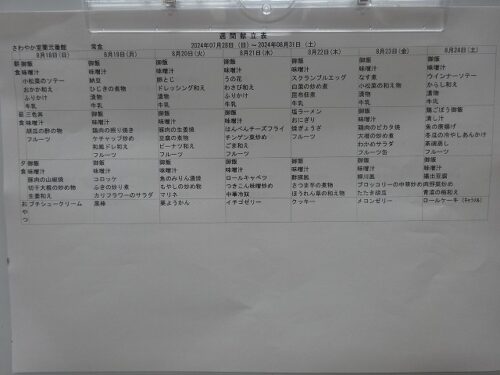 週間献立表
2024年07月28日 (日) ～ 2024年08月31日 (土)
さわやか室蘭弐番館 常食
8月18日(日) 8月19日(月) 8月20日(火) 8月21日(水) 8月22日(木) 8月23日(金) 8月24日(土)
朝 御飯 御飯 御飯 御飯 御飯 御飯 御飯
食 味噌汁 味噌汁 味噌汁 味噌汁 味噌汁 味噌汁 味噌汁
小松菜のソテー 納豆 卵とじ うの花 スクランブルエッグ なす煮 ウインナーソテー
おかか和え ひじきの煮物 ドレッシング和え わさび和え 白菜の炒め煮 小松菜の和え物 からし和え
ふりかけ 漬物 漬物 ふりかけ 昆布佃煮 漬物 漬物
牛乳 牛乳 牛乳 牛乳 牛乳 牛乳 牛乳
昼 三色丼 御飯 御飯 御飯 塩ラーメン 御飯 鶏ごぼう御飯
食 味噌汁 味噌汁 味噌汁 味噌汁 おにぎり 味噌汁 清し汁
胡瓜の酢の物 鶏肉の照り焼き 豚肉の生姜焼 はんぺんチーズフライ 焼ぎょうざ 鶏肉のピカタ焼 魚の唐揚げ
フルーツ ケチャップ炒め 豆腐の煮物 チンゲン菜炒め フルーツ 大根の炒め煮 冬瓜の冷やしあんかけ
和風ドレ和え ピーナツ和え ごま和え わかめサラダ 茶碗蒸し
フルーツ フルーツ フルーツ フルーツ フルーツ
夕 御飯 御飯 御飯 御飯 御飯 御飯 御飯
食 味噌汁 味噌汁 味噌汁 味噌汁 味噌汁 味噌汁 味噌汁
豚肉の山椒焼 コロッケ 魚のみりん漬焼 ロールキャベツ 酢豚風 柳川風 揚出豆腐
切干大根の炒め物 ふきの炒り煮 もやしの炒め物 つきこん味噌炒め さつま芋の煮物 ブロッコリーの中華炒め 肉野菜炒め
生姜和え カリフラワーのサラダ マリネ 中華冷奴 ほうれん草の和え物 たたき胡瓜 青菜の磯和え
お プチシュークリーム 最中 栗ようかん イチゴゼリー クッキー メロンゼリー ロールケーキ (キャラメル)
や
つ